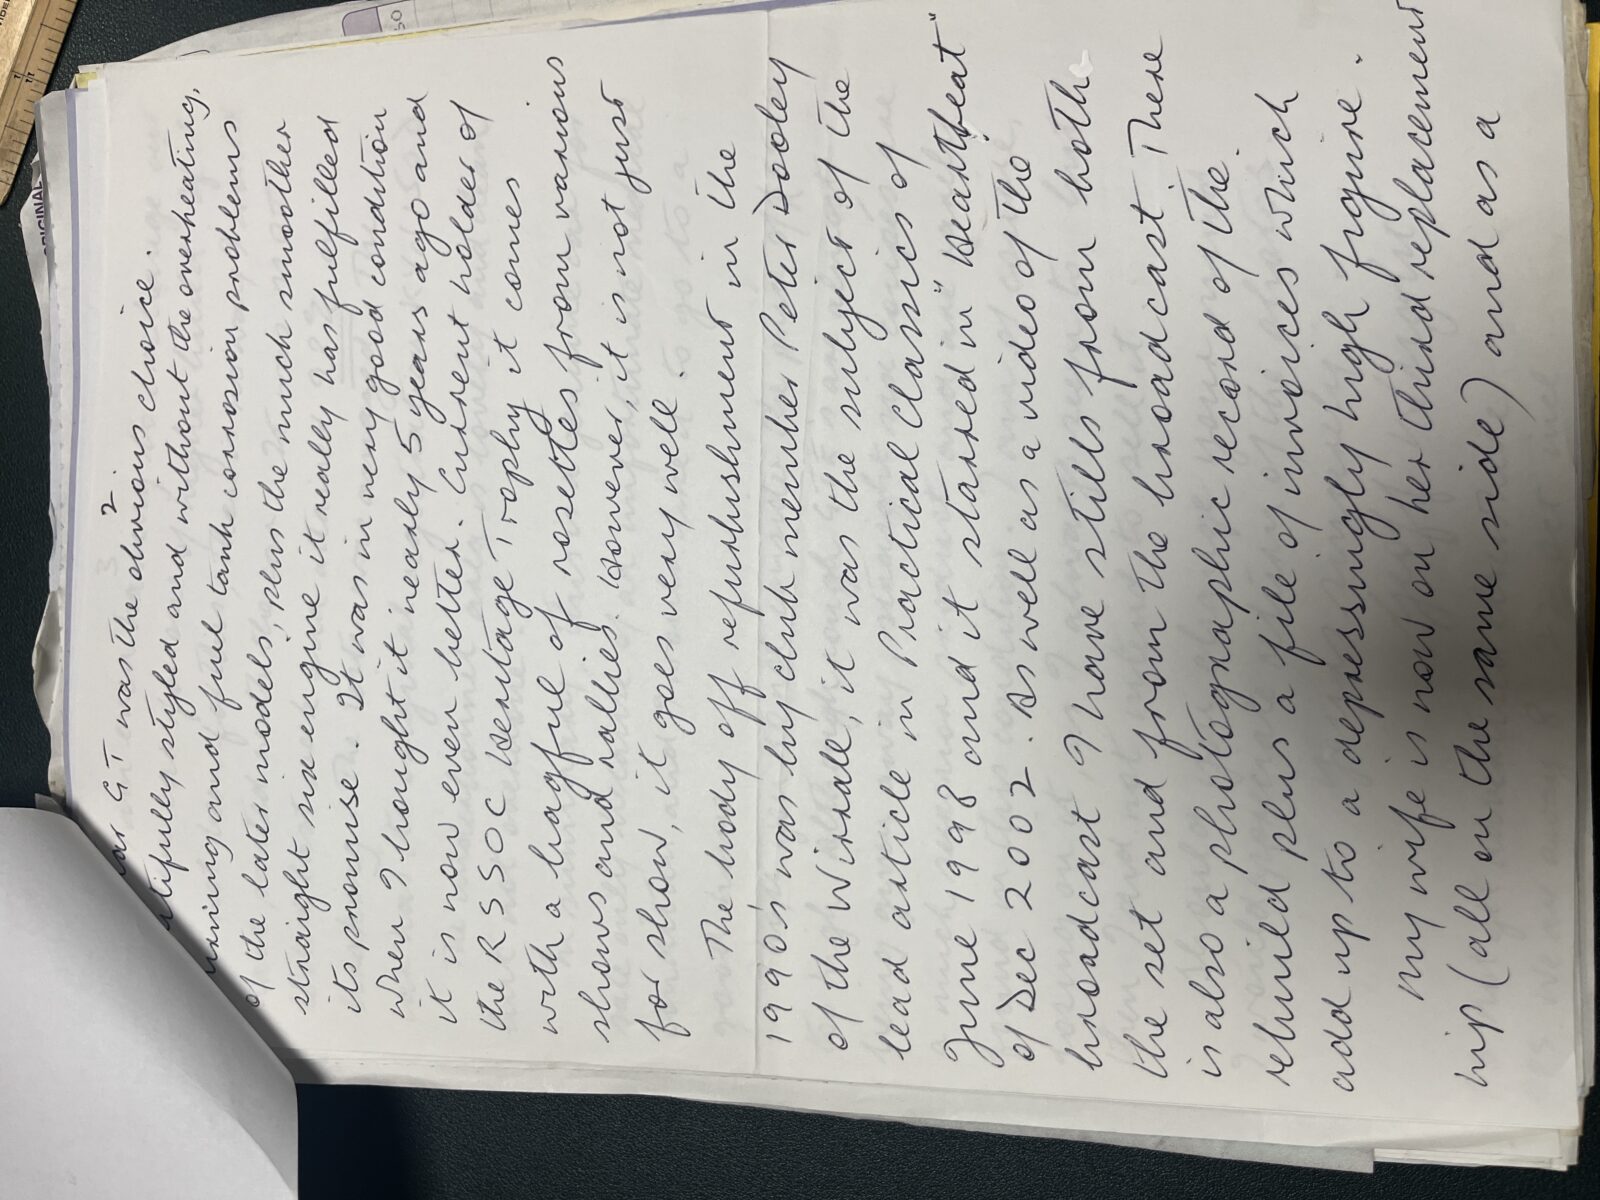 2
GT was the obvious choice.
styled and without the overheating,
and fuel tank corrosion problems
of the later models, plus the much smoother
straight six engine it really has fulfilled
its promise. It was in very good condition
when I bought it nearly 5 years ago and
it is now even better. Current holder of
the RSSOC Heritage Trophy it comes
with a bagful of rosettes from various
shows and rallies. However, it is not just
for show, it goes very well.
The body off refurbushment in the
1990's was by club member Peter Dooley
of the Wirrall, it was the subject of the
lead article in Practical Classics of
June 1998 and it starred in "Heartbeat"
of Dec 2002. As well as a video of the
broadcast I have stills from both
the set and from the broadcast. There
is also a photographic record of the
rebuild plus a file of invoices which
add up to a depressingly high figure.
My wife is now on her third replacement
hip (all on the same side) and as a
ORIGINAL